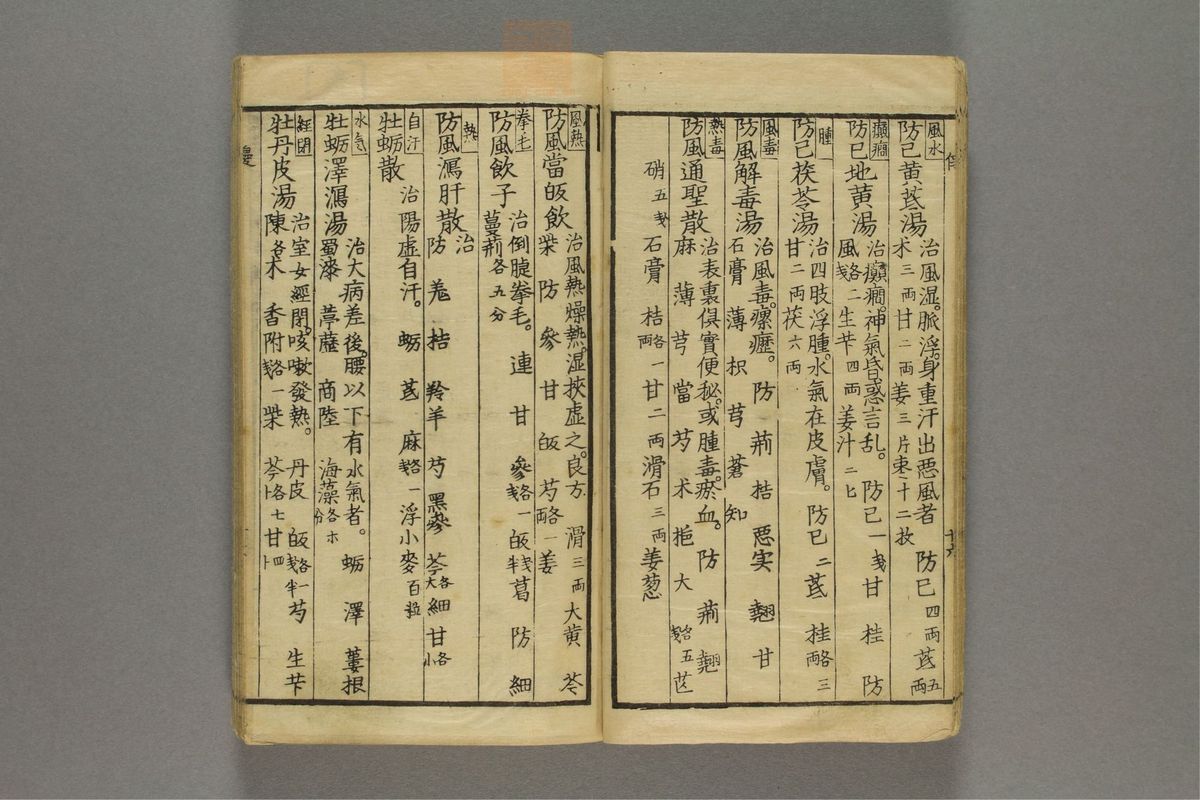 風水
防已黄芪湯
治風湿。脈浮。身重汗出悪風者 防已四両 芪五両
朮三両 甘二両 姜三片 枣十二枚
癲癇
防已地黄湯
治癲癇。神氣昏惑言乱。 防已一戋 甘 桂 防
風各二戋 生芐四両 姜汁二匕
腫
防已茯苓湯
治四肢浮腫。水氣在皮膚。 防已二 芪 桂各三両
甘二両 茯六両
風毒
防風解毒湯
治風毒。瘰癧。 防 荊 桔 悪実 翹 甘
石膏 薄 枳 芎 蒼 知
熱毒
防風通聖散
治表裏倶實便秘。或腫毒。瘀血。 防 荊 翹
麻 薄 芎 當 芍 朮 梔 大各五戋 芒
硝五戋 石膏 桔各一両 甘二両 滑石三両 姜葱
風熱
防風當皈飲
治風熱燥熱。湿挾虚之良方 滑三両 大黄 芩
柴 防 參 甘 皈 芍各一両 姜
拳毛
防風飲子
治倒睫拳毛。 連 甘 參各一戋 皈戋半 葛 防 細
蔓荊各五分
熱
防風瀉肝散
治
防 羗 桔 羚羊 芍 黒參 芩各大 細 甘各小
自汗
牡蛎散
治陽虚自汗。 蛎 芪 麻各一戋 浮小麥百粒
水氣
牡蛎澤瀉湯
治大病差後。腰以下有水氣者。 蛎 澤 蔞根
蜀漆 葶藶 商陸 海藻各朩分
經閉
牡丹皮湯
治室女經閉。咳嗽發熱。 丹皮 皈各一戋半 芍 生芐
陳各 木 香附各一戋 柴 芩各七卜 甘四卜